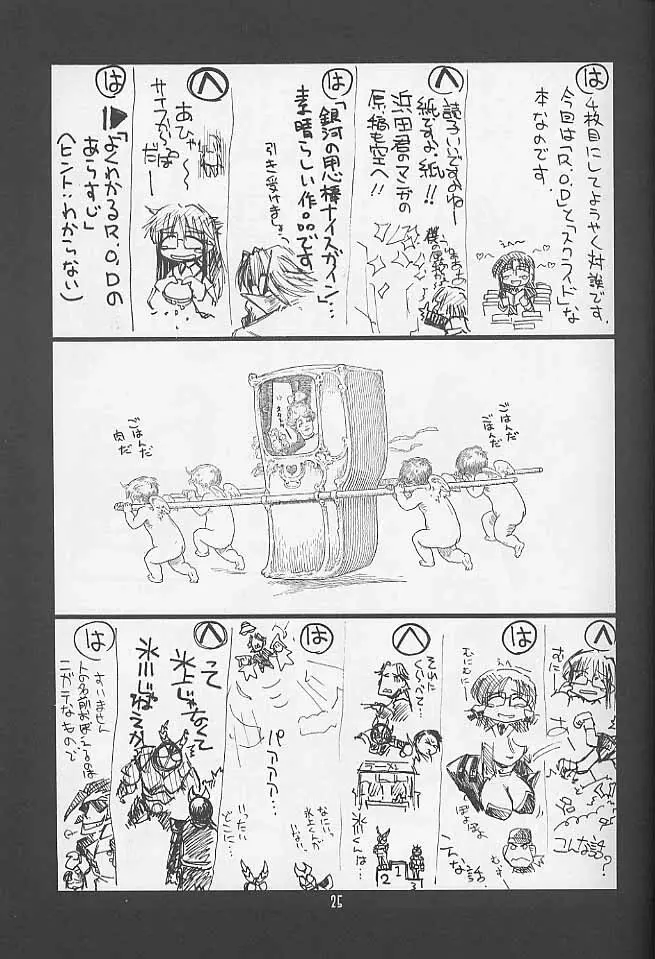 は
4枚目にしてようやく対談です。
今回は「R.O.D」と「スクライド」な
本なのです。
へ
読子いいですよねー
紙ですよ、紙!!
浜田君のマンガの
原稿も空へ!!
僕の原稿がー
は
「銀河の用心棒ナイスガイン」…
素晴らしい作品です
引き受けましょう…
へ
あひゃ〜
だー
は
「よくわかるR.O.Dの
あらすじ」
(ヒント:わからない)
ごはんだ
ごはんだ
ごはんだ
肉だ
へ
むに
こんな話?
は
むにむにー
ぽよぽよ
むぎ
こんな話。
へ
それに
くらべて…
氷川くんは…
2
1
3
は
パアアア…
なにい、
氷上くんが
いない、
いったい
どこに…
へ
って
氷上じゃなくて
氷川じゃねえか
は
すいません
人の名前おぼえるのは
ニガテなもので
25